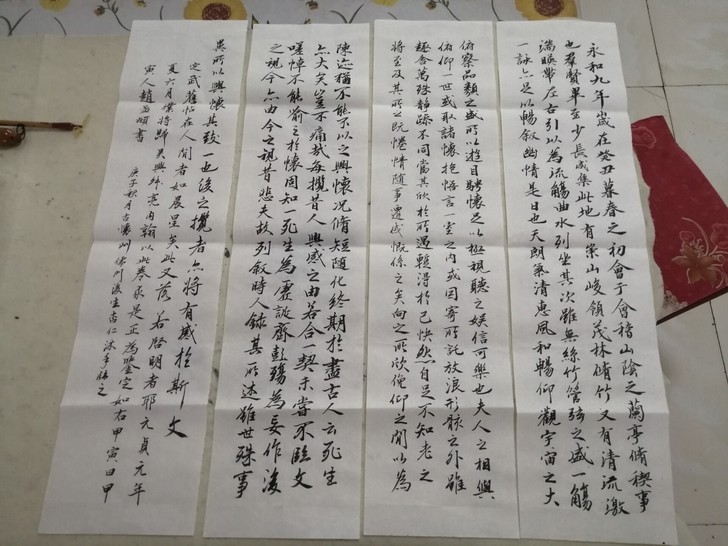 永和九年歲在癸丑暮春之初會于會稽山陰之蘭亭脩禊事
也羣賢畢至少長咸集此地有崇山峻領茂林脩竹又有清流激
湍暎帶左右引以為流觴曲水列坐其次雖無絲竹管弦之盛一觴
一詠亦足以暢敘幽情是日也天朗氣清惠風和暢仰觀宇宙之大
俯察品類之盛所以遊目騁懷足以極視聽之娛信可樂也夫人之相與
俯仰一世或取諸懷抱悟言一室之內或因寄所託放浪形骸之外雖
趣舍萬殊靜躁不同當其欣於所遇暫得於己怏然自足不知老之
將至及其所之既惓情隨事遷感慨係之矣向之所欣俛仰之閒以為
陳迹猶不能不以之興懷況脩短隨化終期於盡古人云死生
亦大矣豈不痛哉每攬昔人興感之由若合一契未嘗不臨文
嗟悼不能喻之於懷固知一死生為虛誕齊彭殤為妄作後
之視今亦由今之視昔悲夫故列敘時人錄其所述雖世殊事
異所以興懷其致一也後之攬者亦將有感於斯文
定武舊帖在人間者如晨星矣此又落落若啓明者耶元貞元年
夏六月僕將歸吳興 內翰以此卷求是正為鑒定如右甲寅日甲
寅人趙孟頫書 庚子秋月古 州 生古仁沐手